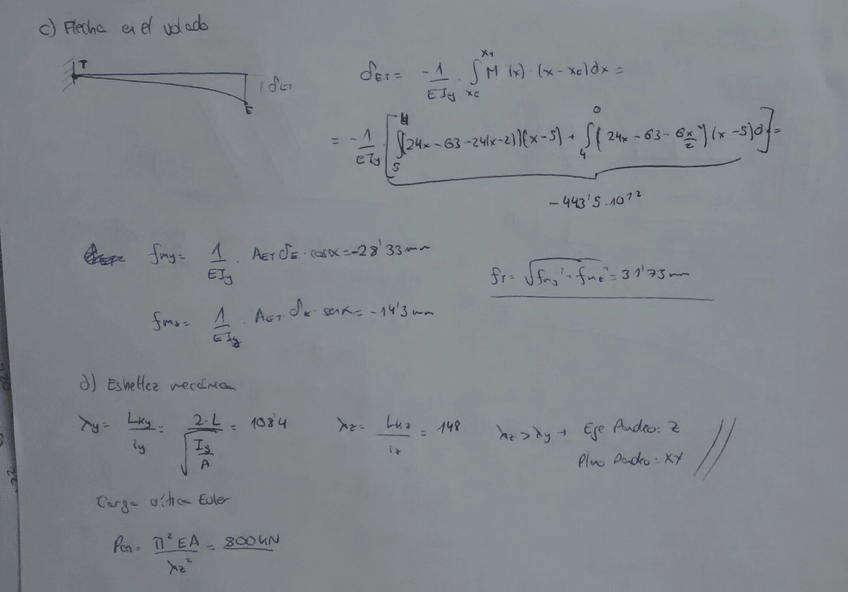 c) Flecha en el volado
T
δET
E
δET = -1/EIy · ∫xE^xT M(x)·(x-xE)dx =
= -1/EIy [∫5^4 (24x-63-24(x-2))(x-5) + ∫4^0 (24x-63-6x²/2)(x-5)d] =
-443'5·10¹²
fmy = 1/EIy · AET δE · cosα = -28'33 mm
fT = √fmy² + fmz² = 31'73 mm
fmz = 1/EIy · AET · δE · senα = -14'3 mm
d) Esbeltez mecánica
λy = Lky/iy = 2·L/√Iy/A = 108'4
λz = Lkz/iz = 148
λz > λy → Eje Pandeo: Z
Plano Pandeo: XY
Carga crítica Euler
Pcr = π² EA/λz² = 800 kN